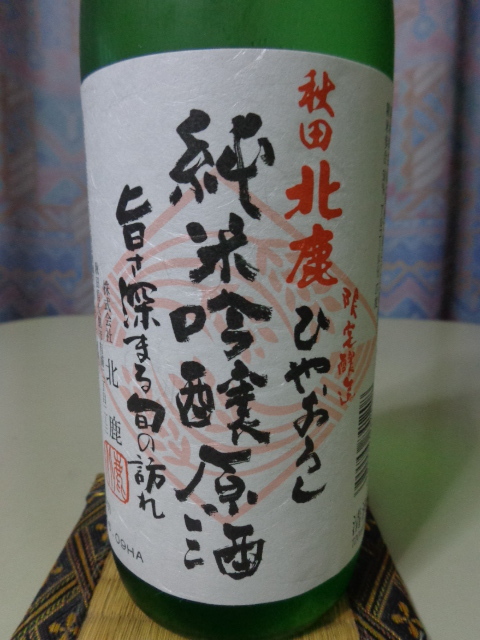 秋田
北鹿
限定醸造
ひやおろし
純米吟醸原酒
旨さ深まる旬の訪れ
株式会社 北鹿
09HA